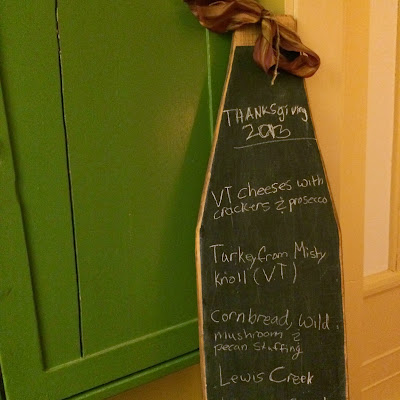 THANKSgiving
2013
VT cheeses with
crackers & prosecco
Turkey from Misty
Knoll (VT)
Cornbread, wild
mushroom &
pecan stuffing
Lewis Creek